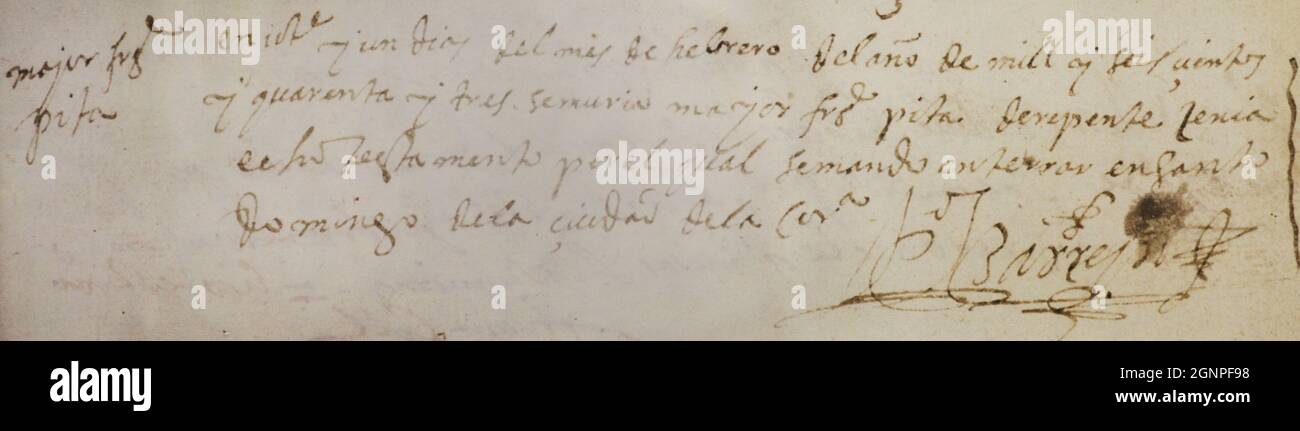 major frz
pita
en vte y un dias del mes de hebrero del año de mill y seisçientos
y quarenta y tres semuria major frz pita derepente tenia
echo testamento por el qual semando enterrar en santo
domingo dela çiudad dela Cora
Barreyro
alamy
Image ID: 2GNPF98
www.alamy.com